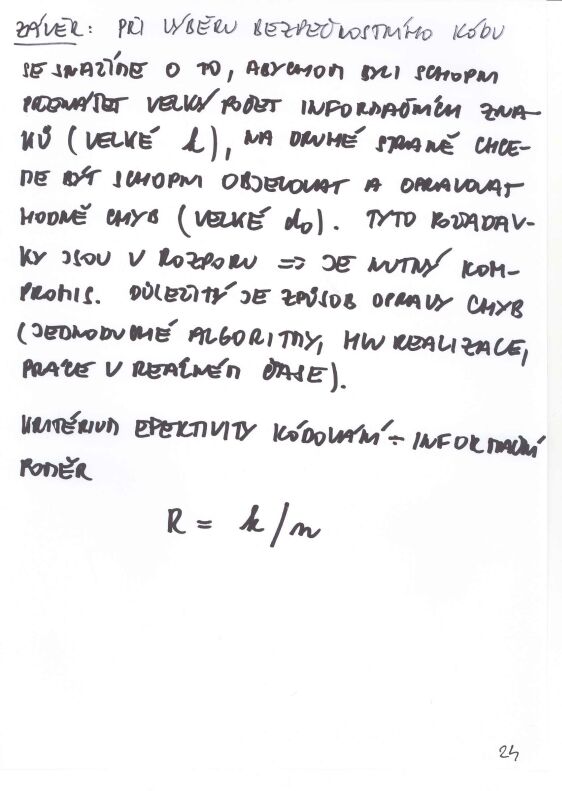 ZÁVĚR: PŘI VÝBĚRU BEZPEČNOSTNÍHO KÓDU
SE SNAŽÍME O TO, ABYCHOM BYLI SCHOPNI
PŘENÁŠET VELKÝ POČET INFORMAČNÍCH ZNA-
KŮ (VELKÉ k), NA DRUHÉ STRANĚ CHCE-
ME BÝT SCHOPNI OBJEVOVAT A OPRAVOVAT
HODNĚ CHYB (VELKÉ d₀). TYTO POŽADAV-
KY JSOU V ROZPORU => JE NUTNÝ KOM-
PROMIS. DŮLEŽITÝ JE ZPŮSOB OPRAVY CHYB
(JEDNODUCHÉ ALGORITMY, HW REALIZACE,
PRÁCE V REÁLNÉM ČASE).
KRITÉRIUM EFEKTIVITY KÓDOVÁNÍ ÷ INFORMAČNÍ
POMĚR
R = k/n
24